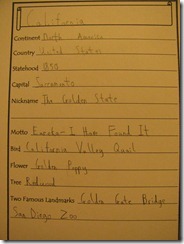 California
Continent North America
Country United States
Statehood 1850
Capital Sacramento
Nickname The Golden State
Motto Eureka-I Have Found It
Bird California Valley Quail
Flower Golden Poppy
Tree Redwood
Two Famous Landmarks Golden Gate Bridge
San Diego Zoo